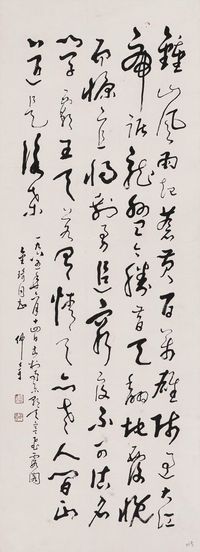 鍾山風雨起蒼黄百萬雄師過大江
虎踞龍盤今勝昔天翻地覆慨
而慷宜將剩勇追窮寇不可沽名
学霸王天若有情天亦老人間正
道是滄桑
一九八五年六月十四日書
同志